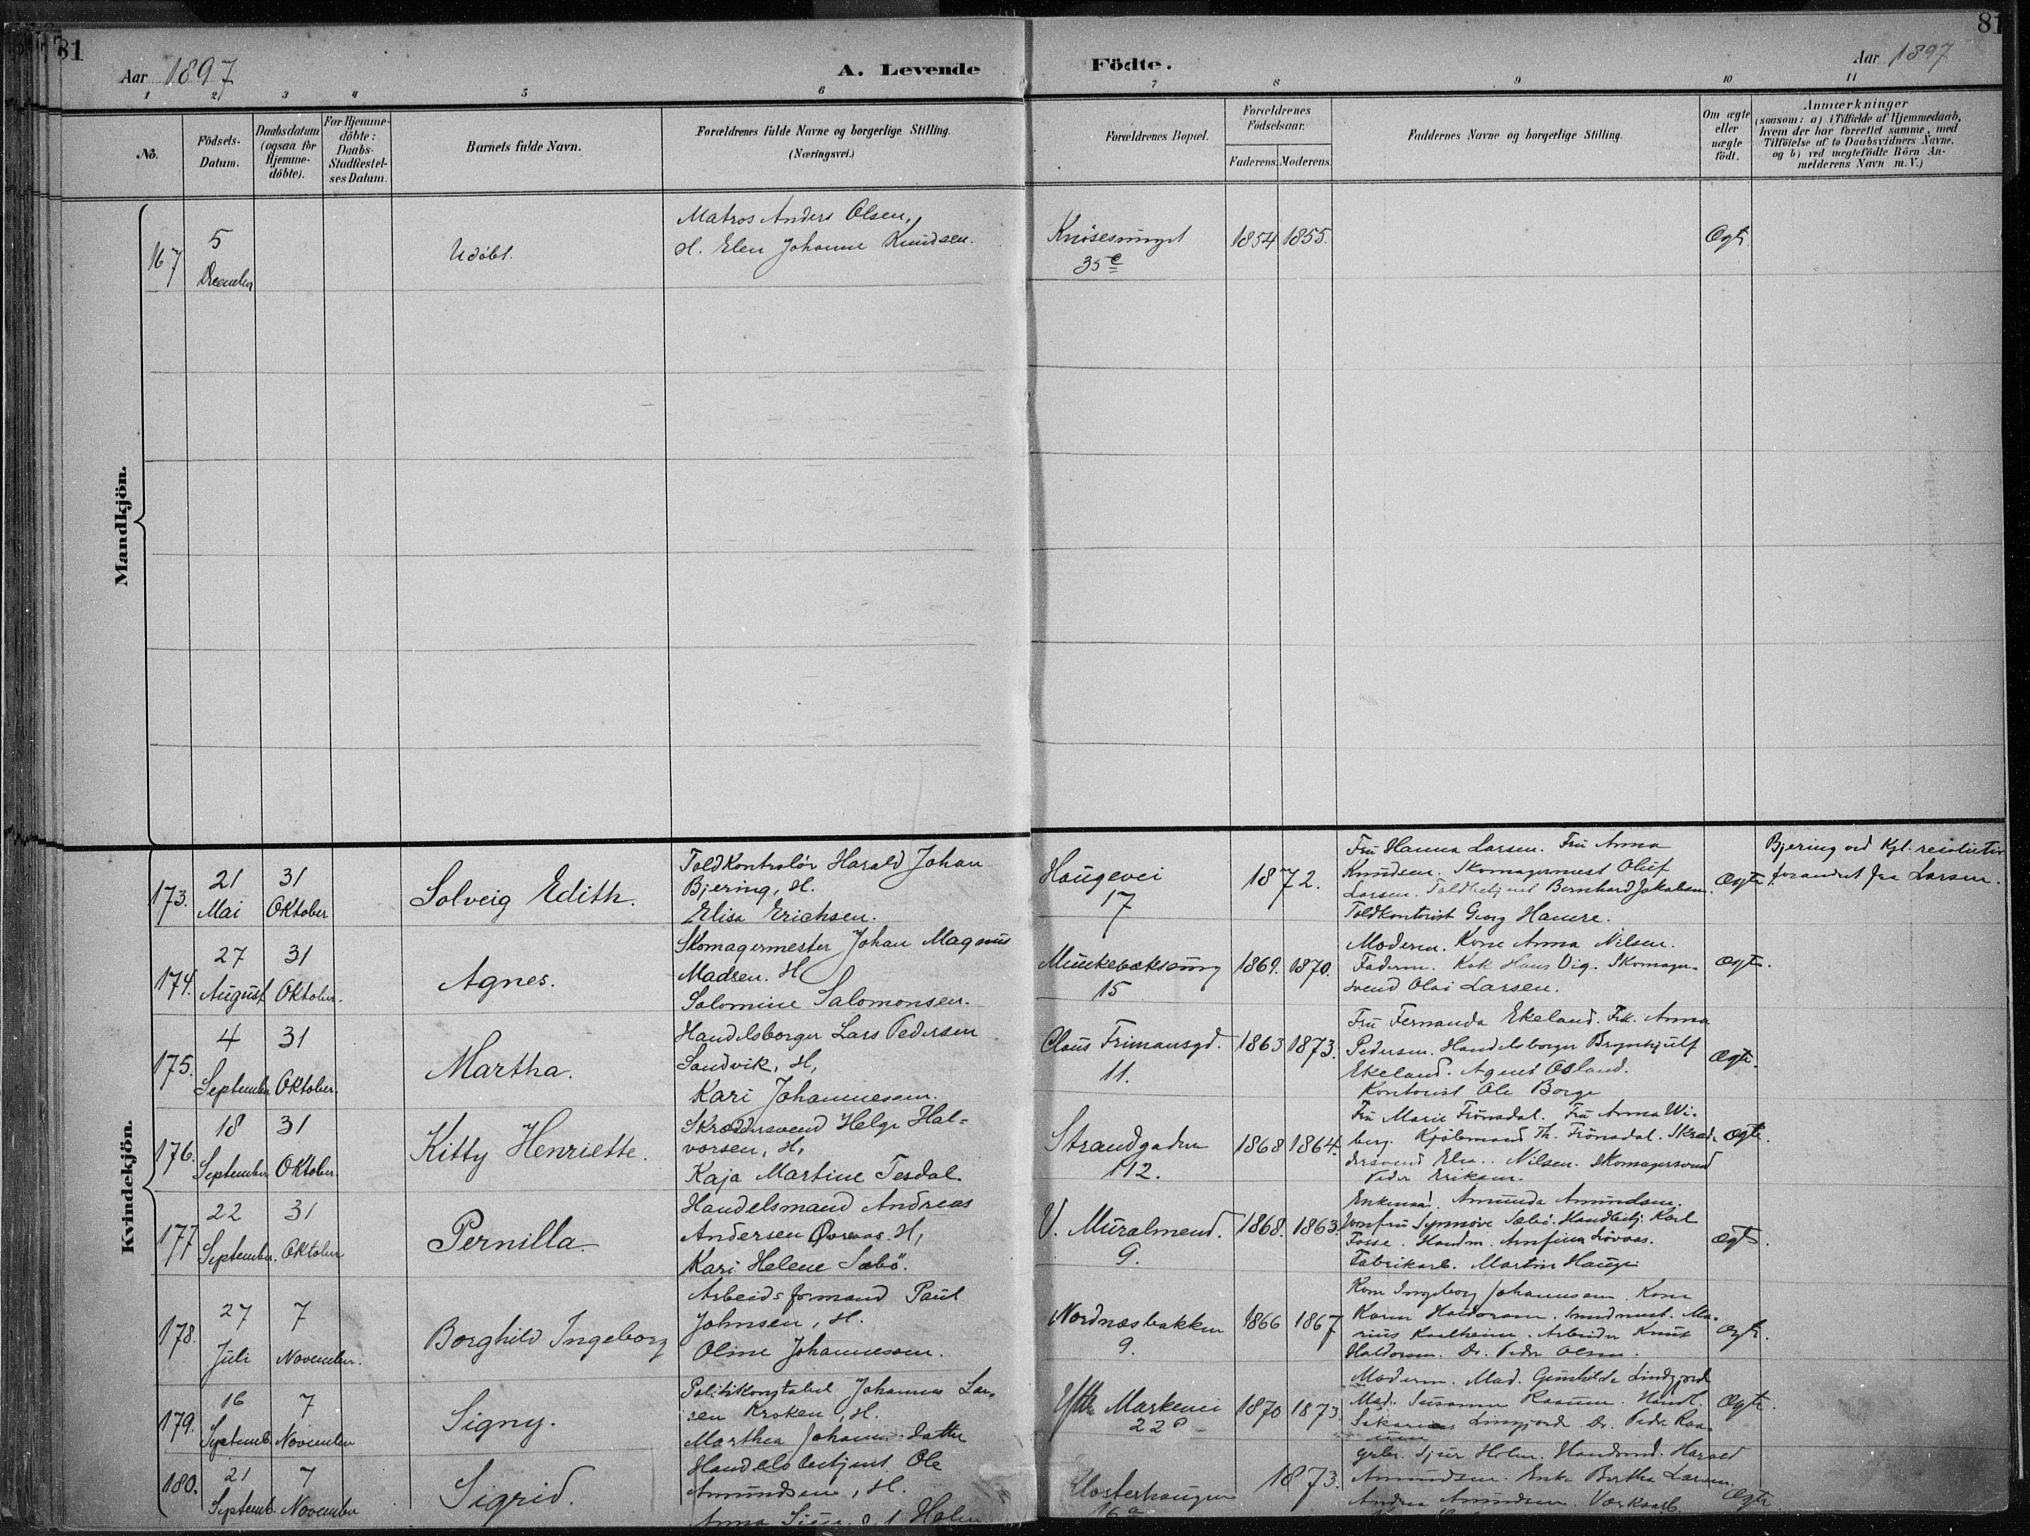 81
81
Aar 1897
A. Levende
Födte.
Aar 1897
1 2 3 4 5 6 7 8 9 10 11
No.
Födsels-
Datum.
Daabsdatum
(ogsaa for
Hjemme-
döbte).
For Hjemme-
döbte:
Daabs-
Stadfæstel-
ses Datum.
Barnets fulde Navn.
Forældrenes fulde Navne og borgerlige Stilling.
(Næringsvei.)
Forældrenes Bopæl.
Forældrenes
Födselsaar.
Faderens.
Moderens.
Faddernes Navne og borgerlige Stilling.
Om ægte
eller
uægte
født.
Anmærkninger
(saasom: a) i Tilfælde af Hjemmedaab,
hvem der har forrettet samme, med
Tilföielse af to Daabsvidners Navne.
og b) ved uægtefödte Börn An-
melderens Navn m. V.)
Mandkjön.
167
5
December
Udöbt.
Matros Anders Olsen,
H. Elen Johanne Knudsen.
Knøsesmuget
35 c
1854
1855.
Ægte
Kvindekjön.
173.
21
Mai
31
Oktober
Solveig Edith.
Toldkontrolör Harald Johan
Bjering, H.
Elisa Erichsen.
Haugevei
17
1872.
Fru Hanna Larsen. Fru Anna
Knudsen. Skomagermest Oluf
Larsen. Toldbetjent Bernhard Jakobsen.
Toldkontorist Georg Hamre.
Ægte
Bjering ved Kgl. resolution
forandret fra Larsen.
174.
27
August
31
Oktober.
Agnes.
Skomagermester Johan Magnus
Madsen. H
Salomine Salomonsen.
Munkebæksmug
15
1869.
1870.
Moderen. Kone Anna Nilsen.
Faderen. Kok Hans Vig. Skomager-
svend Olai Larsen.
Ægte.
175.
4
September
31
Oktober.
Martha.
Handelsborger Lars Pedersen
Sandvik, H,
Kari Johannesen.
Claus Frimansgd.
11.
1863
1873.
Fru Fernanda Ekeland. Frk. Anna
Pedersen. Handelsborger Brynhjulf
Ekeland. Agent Osland.
Kontorist Ole Borge
Ægte.
176.
18
September
31
Oktober.
Kitty Henriette.
Skræddersvend Helge Hal-
vorsen, H,
Kaja Martine Tesdal.
Strandgaden
112.
1868
1864.
Fru Marie Frönsdal. Fru Anna Wi-
berg. Kjöbmand Th. Frönsdal. Skræd-
dersvend Nilsen. Skomagersvend
Peder Eriksen.
Ægte.
177
22
September.
31
Oktober
Pernilla.
Handelsmand Andreas
Andersen Øvreaas. H,
Kari Helene Sæbö.
V. Muralmend.
9.
1868.
1863.
Amunda Amundsen.
Jomfru Synnöve Sæbö. Handbetj. Karl
Fosse. Handm. Arnfinn Lövaas.
Fabrikarb. Martin Hauge
Ægte.
178.
27
Juli
7
November.
Borghild Ingeborg
Arbeidsformand Paul
Johnsen, H.
Oline Johannesen.
Nordnæsbakken
9.
1866
1867
Kone Ingeborg Johannesen. Kone
Karen Haldorsen. Ma-
rius Kaalheim. Arbeider Knut
Haldorsen. Do. Peder Olsen.
Ægte.
179.
16
Septemb.
7
November
Signy.
Politikonstabel Johannes Lar-
sen Kroken, H.
Marthea Johannesdatter
Markevei
22
1870
1873.
Moderen. Mad. Gunhilde Lindfjord
Mad. Susanne Handl.
Sakarias Do. Peder
Ægte.
180.
21
Septemb.
7
November
Sigrid.
Handelsbetjent Ole
Amundsen, H.
Anna Holm
Klosterhaugen
16 a
1873.
Sjur Holm. Handsmd. Harald
Amundsen. Enke Bertha Larsen.
Andrea Amundsen. Værksarb.
Ægte.